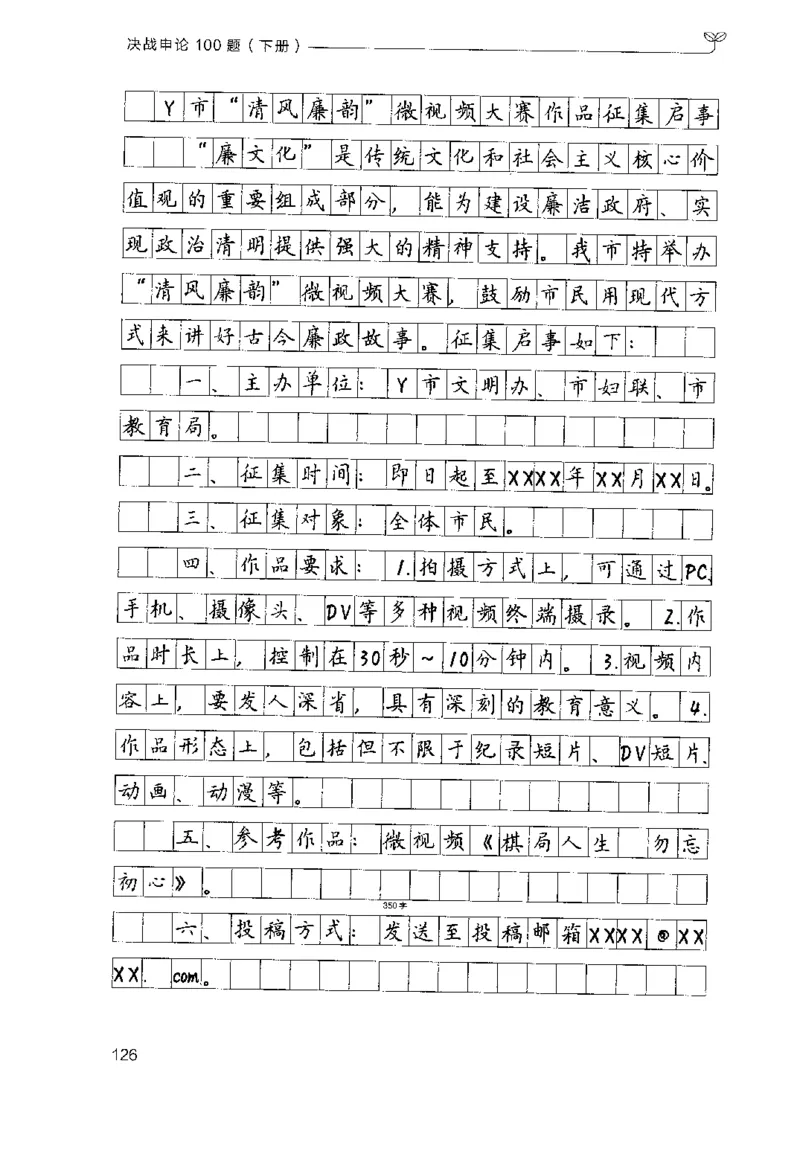 决战申论 100 题（下册）
Y市“清风廉韵”微视频大赛作品征集启事
“廉文化”是传统文化和社会主义核心价
值观的重要组成部分，能为建设廉洁政府、实
现政治清明提供强大的精神支持。我市特举办
“清风廉韵”微视频大赛，鼓励市民用现代方
式来讲好古今廉政故事。征集启事如下：
一、主办单位：Y市文明办、市妇联、市
教育局。
二、征集时间：即日起至XXXX年XX月XX日。
三、征集对象：全体市民。
四、作品要求：1.拍摄方式上，可通过PC、
手机、摄像头、DV等多种视频终端摄录。2.作
品时长上，控制在30秒~10分钟内。3.视频内
容上，要发人深省，具有深刻的教育意义。4.
作品形态上，包括但不限于纪录短片、DV短片、
动画、动漫等。
五、参考作品：微视频《棋局人生 勿忘
初心》。
350字
六、投稿方式：发送至投稿邮箱XXXX@XX
XX.com。
126